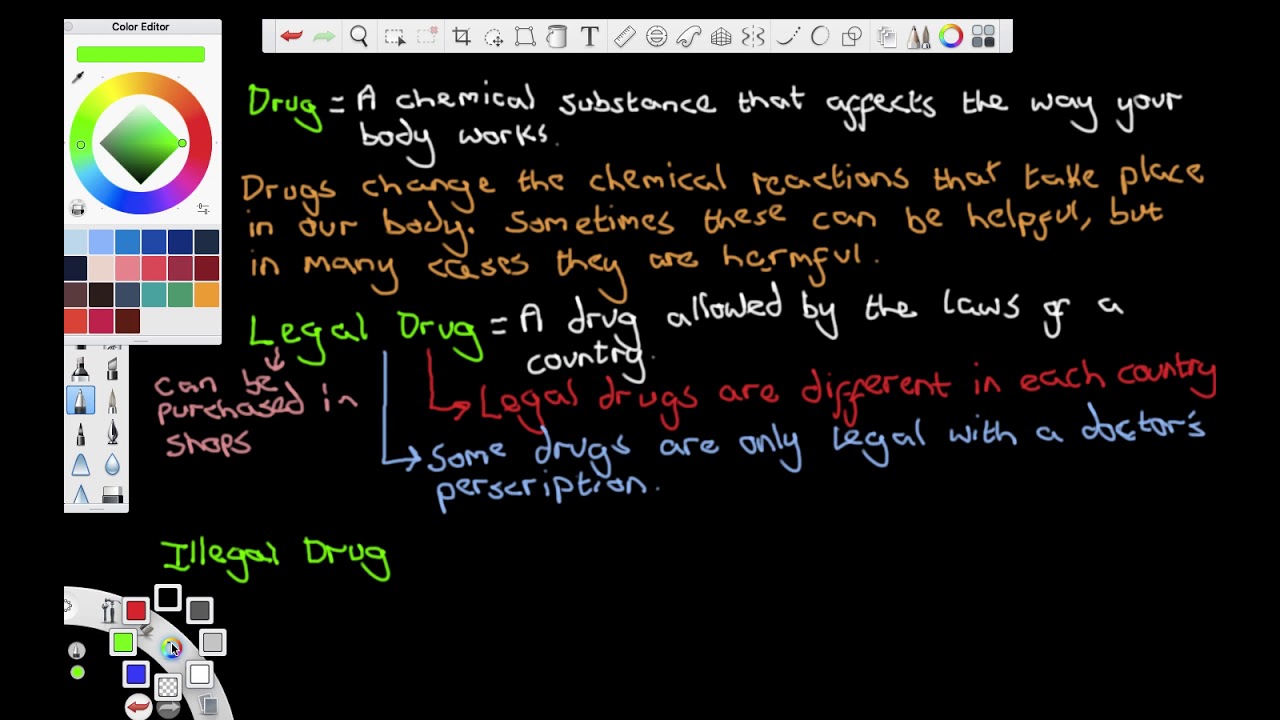 Color Editor
T
Drug = A chemical substance that affects the way your
body works.
Drugs change the chemical reactions that take place
in our body. Sometimes these can be helpful, but
in many cases they are harmful.
Legal Drug = A drug allowed by the laws of a
country.
can be
purchased in
shops
Legal drugs are different in each country
Some drugs are only legal with a doctor's
perscription.
Illegal Drug